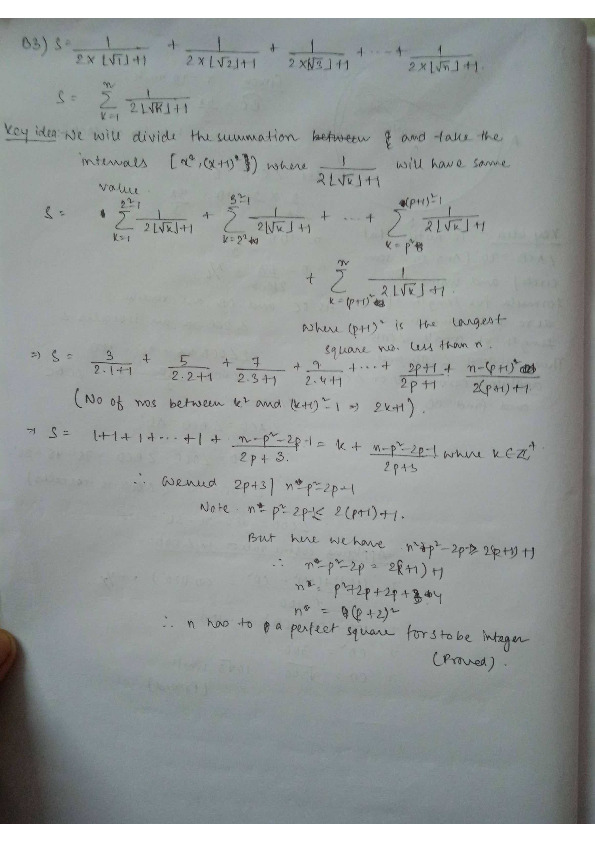 Q3) S = 1/(2×⌊√1⌋+1) + 1/(2×⌊√2⌋+1) + 1/(2×⌊√3⌋+1) + ... + 1/(2×⌊√n⌋+1)
S = n Σ k=1 1/(2⌊√k⌋+1)
Key idea We will divide the summation between and take the
intervals [x², (x+1)²) where 1/(2⌊√k⌋+1) will have same
value.
S = 2²-1 Σ k=1 1/(2⌊√k⌋+1) + 3²-1 Σ k=2² 1/(2⌊√k⌋+1) + ... + (p+1)²-1 Σ k=p² 1/(2⌊√k⌋+1)
+ n Σ k=(p+1)² 1/(2⌊√k⌋+1).
where (p+1)² is the largest
square no. less than n.
⇒ S = 3/(2.1+1) + 5/(2.2+1) + 7/(2.3+1) + 9/(2.4+1) + ... + (2p+1)/(2p+1) + (n-(p+1)²)/(2(p+1)+1)
(No of nos between k² and (k+1)²-1 ⇒ 2k+1).
⇒ S = 1+1+1+...+1 + (n-p²-2p-1)/(2p+3) = k + (n-p²-2p-1)/(2p+3) where k ∈ Z⁺
∴ We need 2p+3 | n-p²-2p-1
Note n-p²-2p-1 ≤ 2(p+1)+1.
But here we have n-p²-2p-1 ≥ 2(p+1)+1
∴ n-p²-2p = 2(p+1)+1
n = p²+2p+2p+4
n = (p+2)²
∴ n has to a perfect square for S to be integer
(Proved).